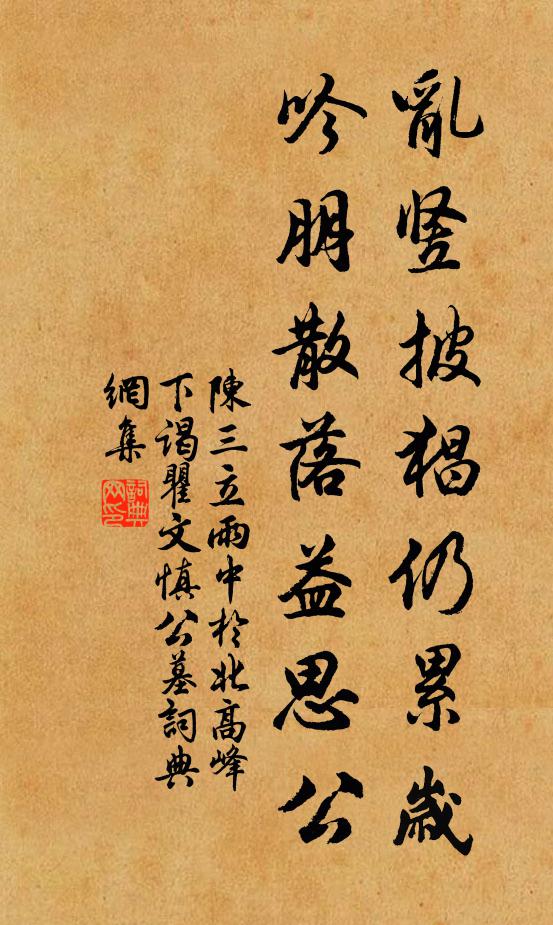 亂豎披猖仍累歲
吟朋散落益思公
陳三立雨中於北高峰
下謁瞿文慎公墓詞典
網集
詞典
網印